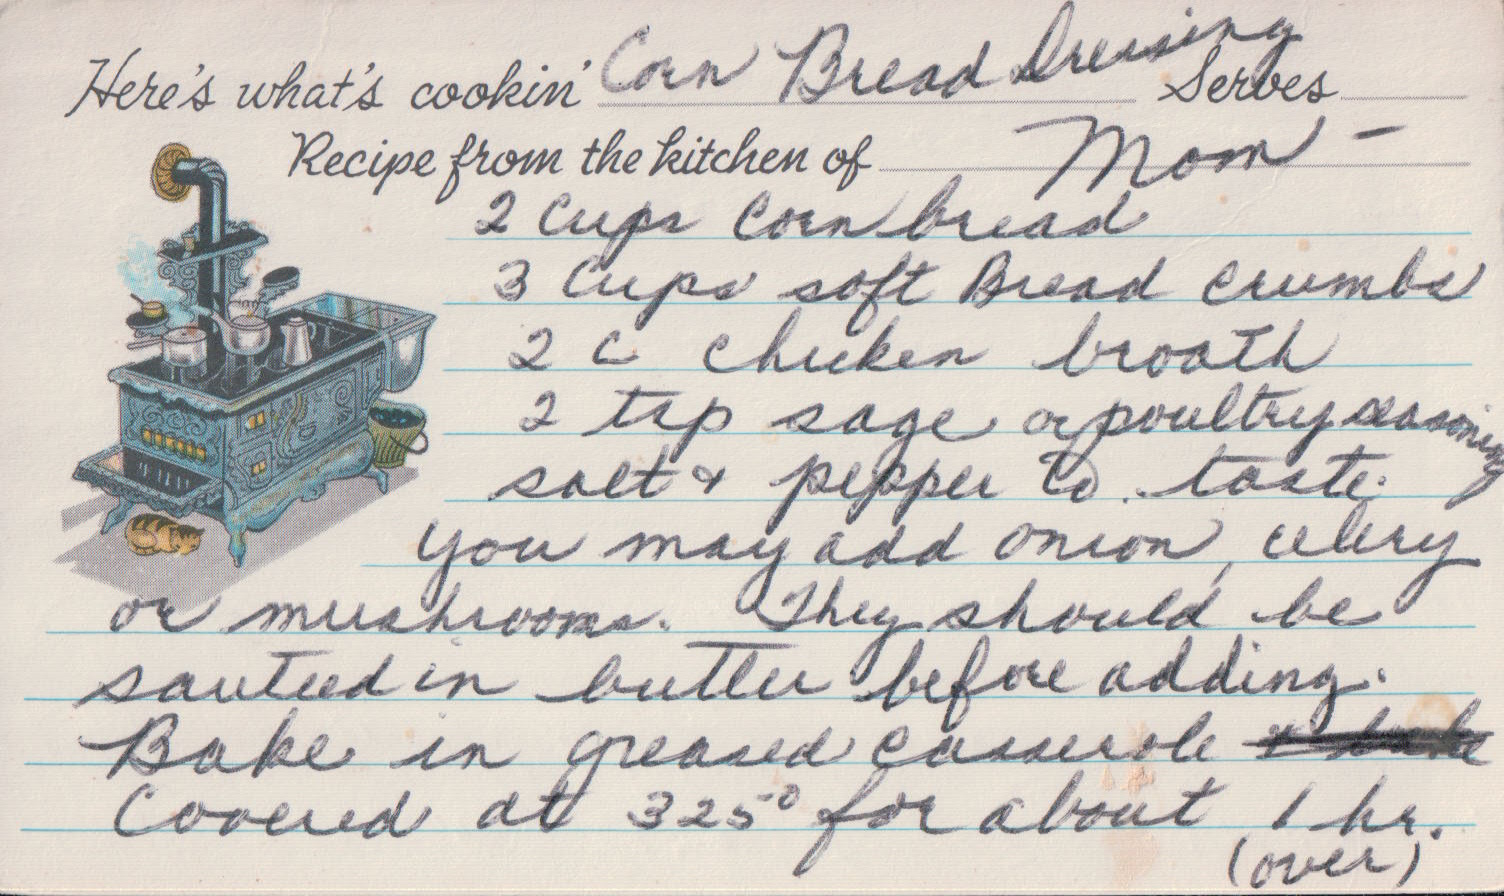 Here's what's cookin' Corn Bread Dressing Serves
Recipe from the kitchen of Mom -
2 Cups Corn bread
3 Cups soft Bread crumbs
2 C chicken broath
2 tsp sage or poultry seasoning
salt & pepper to taste.
you may add onion, celery
or mushrooms. They should be
sauteed in butter before adding.
Bake in greased casserole & bake
Covered at 325° for about 1 hr.
(over)